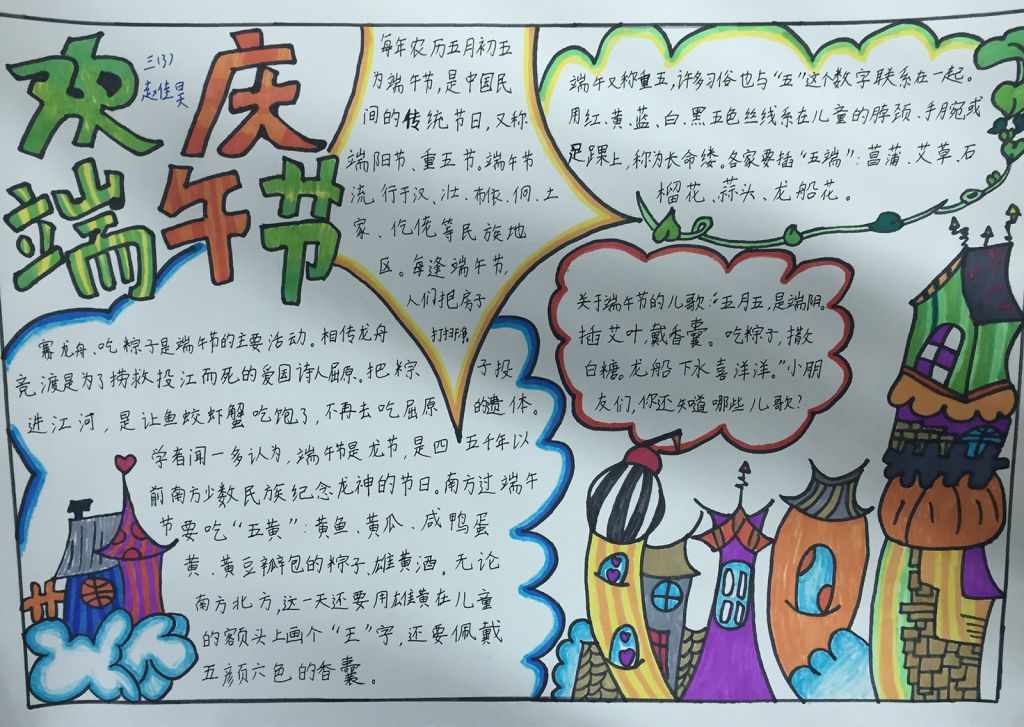 欢庆
三(3)
赵佳昊
端午节
每年农历五月初五
为端午节,是中国民
间的传统节日,又称
端阳节、重五节。端午节
流行于汉、壮、布依、侗、土
家、仡佬等民族地
区。每逢端午节,
人们把房子
打扫干净
端午又称重五,许多习俗也与“五”这个数字联系在一起。
用红、黄、蓝、白、黑五色丝线系在儿童的脖颈、手腕或
足踝上,称为长命缕。各家要插“五端”:菖蒲、艾草、石
榴花、蒜头、龙船花。
赛龙舟、吃粽子是端午节的主要活动。相传龙舟
竞渡是为了捞救投江而死的爱国诗人屈原。把粽子投
进江河,是让鱼蛟虾蟹吃饱了,不再去吃屈原的遗体。
学者闻一多认为,端午节是龙节,是四五千年以
前南方少数民族纪念龙神的节日。南方过端午
节要吃“五黄”:黄鱼、黄瓜、咸鸭蛋
黄、黄豆瓣包的粽子、雄黄酒。无论
南方北方,这一天还要用雄黄在儿童
的额头上画个“王”字,还要佩戴
五颜六色的香囊。
关于端午节的儿歌:“五月五,是端阳。
插艾叶,戴香囊。吃粽子,撒
白糖。龙船下水喜洋洋。”小朋
友们,你还知道哪些儿歌?